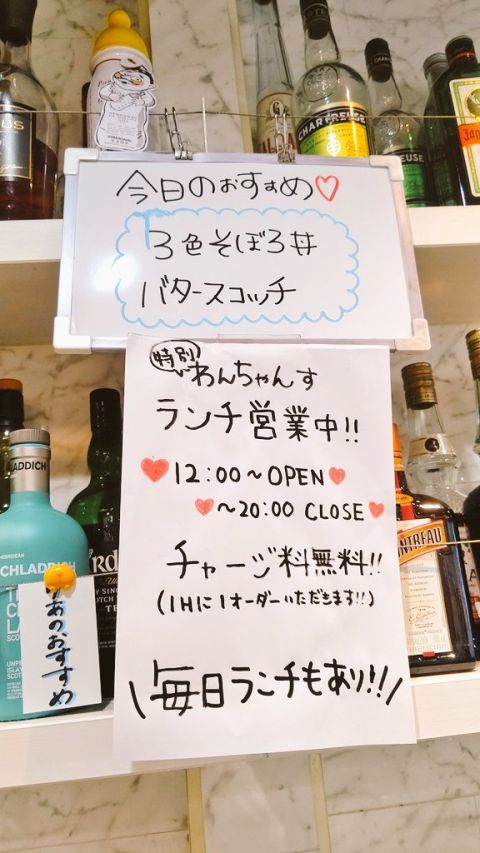 CHARTREUSE
今日のおすすめ♡
3色そぼろ丼
バタースコッチ
特別
わんちゃんす
ランチ営業中!!
12:00~OPEN
~20:00 CLOSE
チャージ料無料!!
(1Hに1オーダーいただきます!!)
\毎日ランチもあり!!/
おのおすすめ